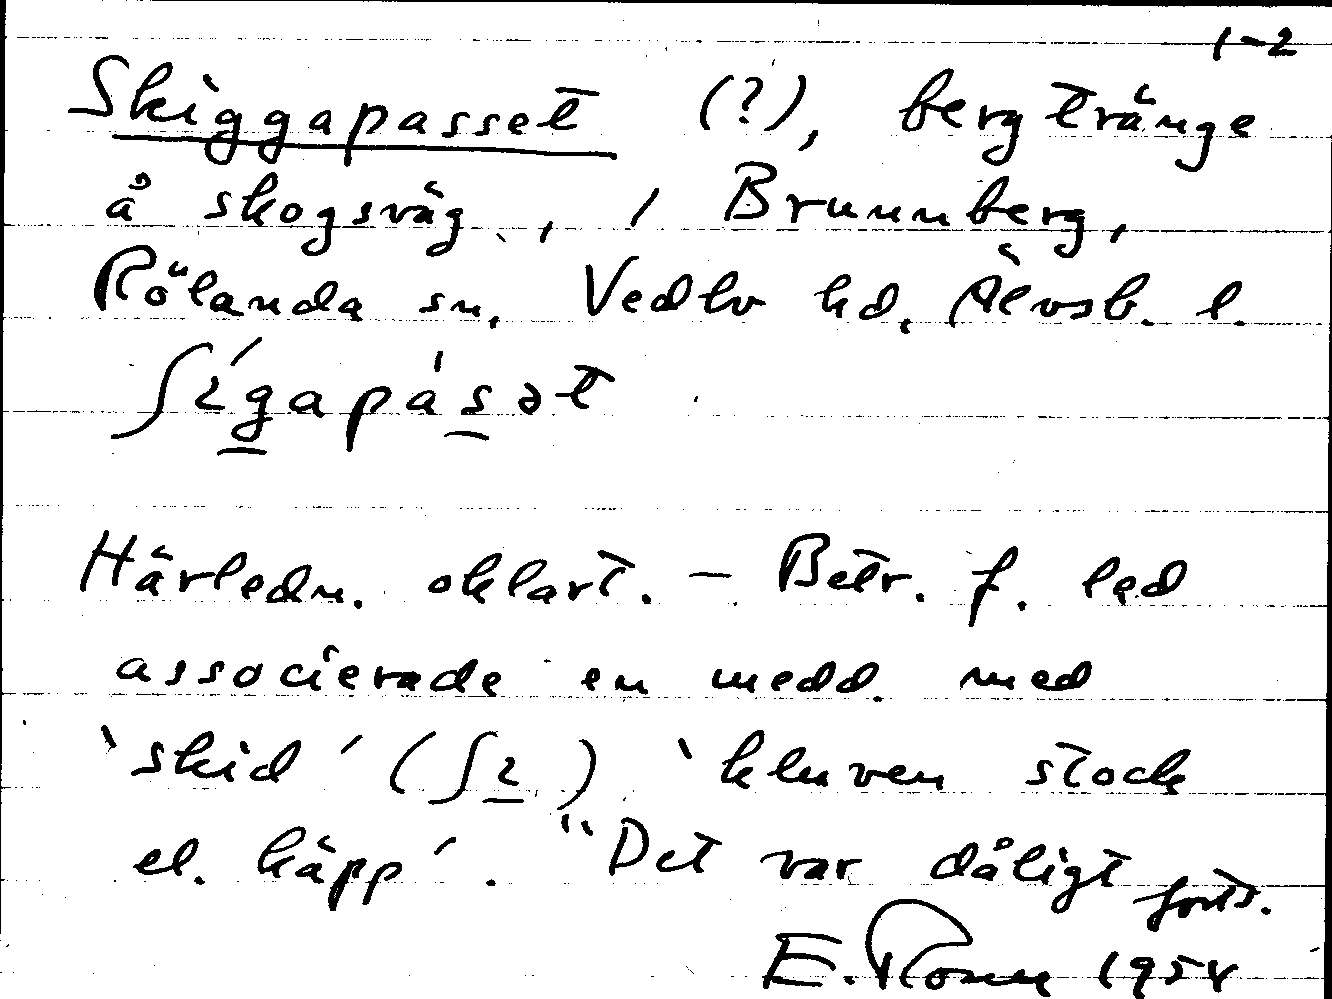 1-2
Skiggapasset (?), bergtränge
å skogsväg, i Brunnberg,
Rölanda sn, Vedbo hd, Älvsb. l.
ʃi´gapa´sət
Härledn. oklart. – Betr. f. led
associerade en medd. med
`skid´ (ʃi) `kluven stock
el. käpp´. "Det var dåligt forts.
E. 1954